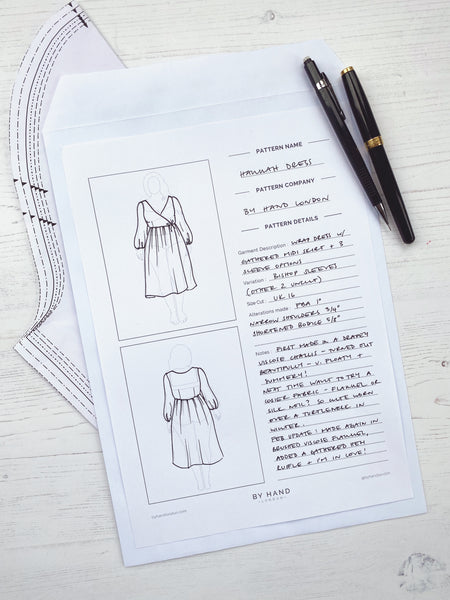 PATTERN NAME
HANNAH DRESS
PATTERN COMPANY
BY HAND LONDON
PATTERN DETAILS
Garment Description: WRAP DRESS W/
GATHERED MIDI SKIRT + 3
SLEEVE OPTIONS
Variation: BISHOP SLEEVES
(OTHER 2 UNCUT)
Size Cut: UK 16
Alterations made: FBA 1"
NARROW SHOULDERS 3/4"
SHORTENED BODICE 5/8"
Notes: FIRST MADE IN A DRAPEY
VISCOSE CHALLIS - TURNED OUT
BEAUTIFULLY - V. FLOATY +
SUMMERY!
NEXT TIME WANT TO TRY A
COSIER FABRIC - FLANNEL OR
SILK NOIL? SO CUTE WORN
OVER A TURTLENECK IN
WINTER.
FEB UPDATE! MADE AGAIN IN
BRUSHED VISCOSE FLANNEL,
ADDED A GATHERED HEM
RUFFLE + I'M IN LOVE!
BY HAND
LONDON
byhandlondon.com
@byhandlondon